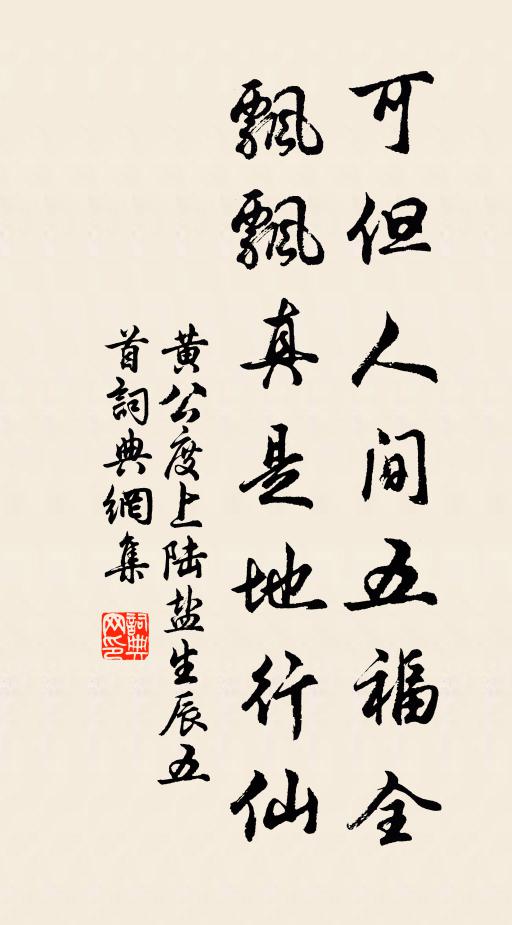 可但人间五福全
飘飘真是地行仙
黄公度上陆盐生辰五
首詞典網集
詞典
网印